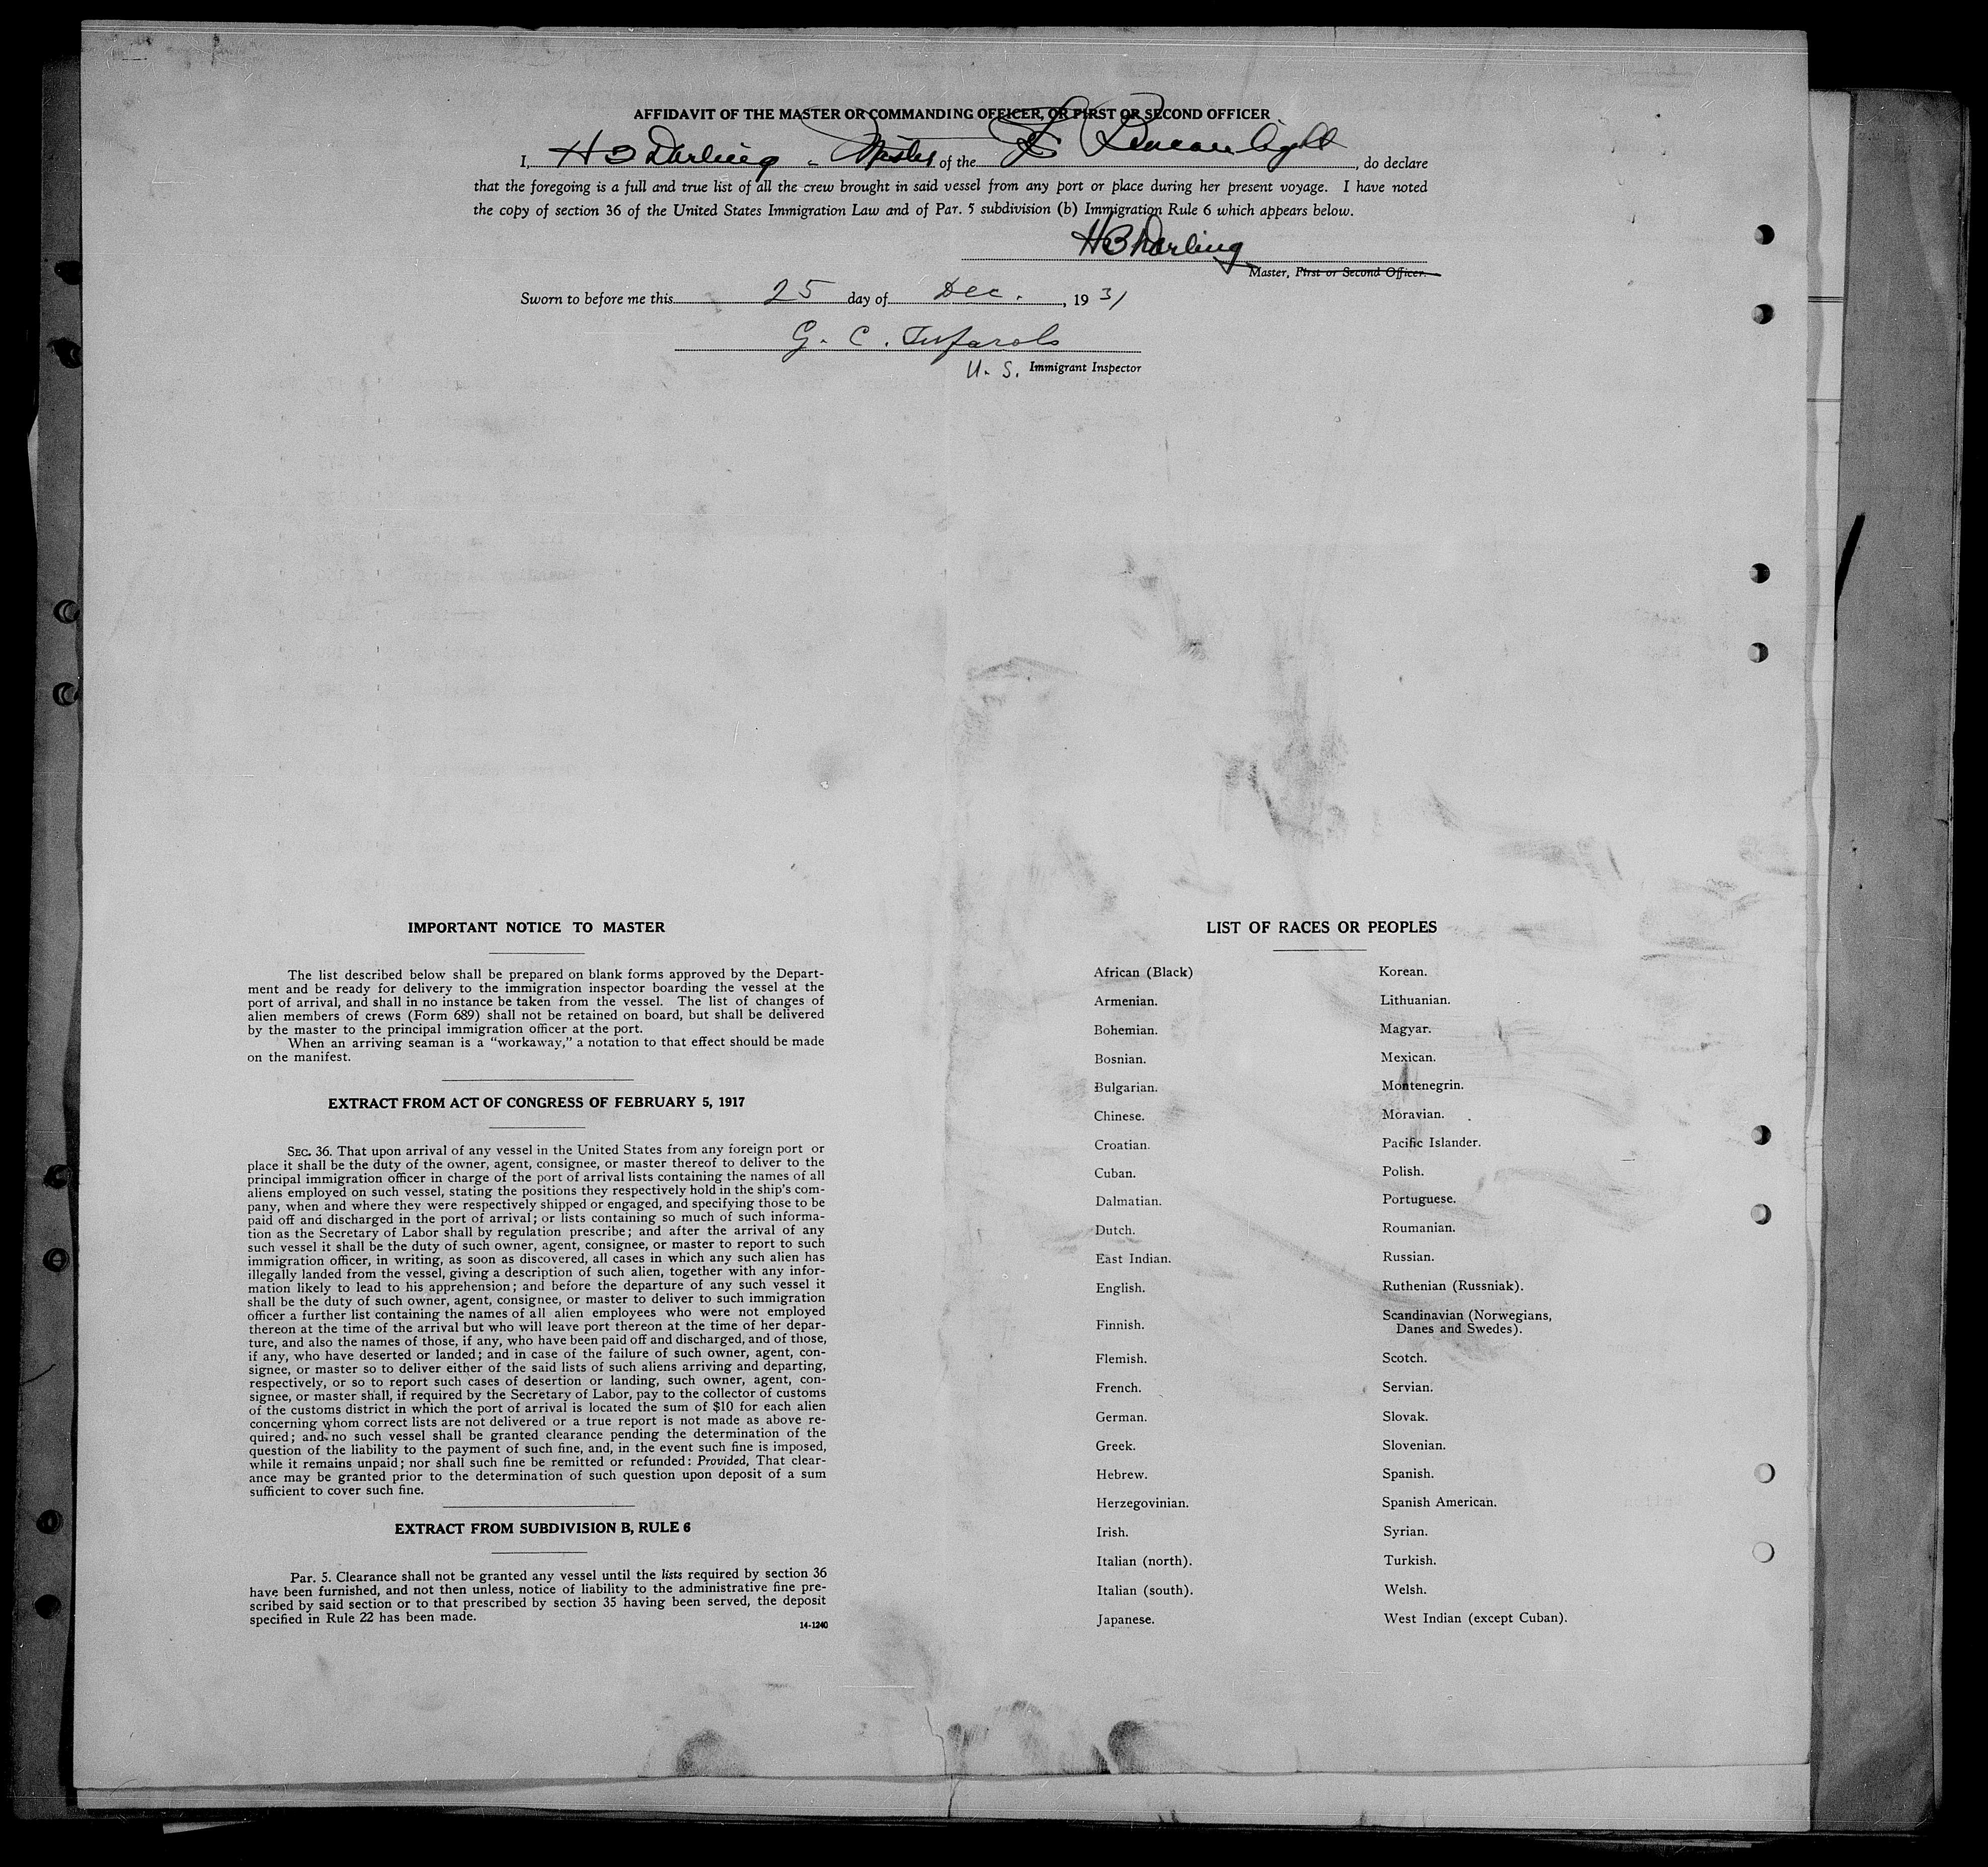 AFFIDAVIT OF THE MASTER OR COMMANDING OFFICER, OR FIRST OR SECOND OFFICER
I, H B Darling - Master of the SS Beaconlight, do declare
that the foregoing is a full and true list of all the crew brought in said vessel from any port or place during her present voyage. I have noted
the copy of section 36 of the United States Immigration Law and of Par. 5 subdivision (b) Immigration Rule 6 which appears below.
H B Darling
Master, First or Second Officer.
Sworn to before me this 25 day of Dec., 1931
G. C.
U. S. Immigrant Inspector
IMPORTANT NOTICE TO MASTER
The list described below shall be prepared on blank forms approved by the Depart-
ment and be ready for delivery to the immigration inspector boarding the vessel at the
port of arrival, and shall in no instance be taken from the vessel. The list of changes of
alien members of crews (Form 689) shall not be retained on board, but shall be delivered
by the master to the principal immigration officer at the port.
When an arriving seaman is a "workaway," a notation to that effect should be made
on the manifest.
EXTRACT FROM ACT OF CONGRESS OF FEBRUARY 5, 1917
SEC. 36. That upon arrival of any vessel in the United States from any foreign port or
place it shall be the duty of the owner, agent, consignee, or master thereof to deliver to the
principal immigration officer in charge of the port of arrival lists containing the names of all
aliens employed on such vessel, stating the positions they respectively hold in the ship's com-
pany, when and where they were respectively shipped or engaged, and specifying those to be
paid off and discharged in the port of arrival; or lists containing so much of such informa-
tion as the Secretary of Labor shall by regulation prescribe; and after the arrival of any
such vessel it shall be the duty of such owner, agent, consignee, or master to report to such
immigration officer, in writing, as soon as discovered, all cases in which any such alien has
illegally landed from the vessel, giving a description of such alien, together with any infor-
mation likely to lead to his apprehension; and before the departure of any such vessel it
shall be the duty of such owner, agent, consignee, or master to deliver to such immigration
officer a further list containing the names of all alien employees who were not employed
thereon at the time of the arrival but who will leave port thereon at the time of her depar-
ture, and also the names of those, if any, who have been paid off and discharged, and of those,
if any, who have deserted or landed; and in case of the failure of such owner, agent, con-
signee, or master so to deliver either of the said lists of such aliens arriving and departing,
respectively, or so to report such cases of desertion or landing, such owner, agent, con-
signee, or master shall, if required by the Secretary of Labor, pay to the collector of customs
of the customs district in which the port of arrival is located the sum of $10 for each alien
concerning whom correct lists are not delivered or a true report is not made as above re-
quired; and no such vessel shall be granted clearance pending the determination of the
question of the liability to the payment of such fine, and, in the event such fine is imposed,
while it remains unpaid; nor shall such fine be remitted or refunded: Provided, That clear-
ance may be granted prior to the determination of such question upon deposit of a sum
sufficient to cover such fine.
EXTRACT FROM SUBDIVISION B, RULE 6
Par. 5. Clearance shall not be granted any vessel until the lists required by section 36
have been furnished, and not then unless, notice of liability to the administrative fine pre-
scribed by said section or to that prescribed by section 35 having been served, the deposit
specified in Rule 22 has been made.
14-1240
LIST OF RACES OR PEOPLES
African (Black)
Armenian.
Bohemian.
Bosnian.
Bulgarian.
Chinese.
Croatian.
Cuban.
Dalmatian.
Dutch.
East Indian.
English.
Finnish.
Flemish.
French.
German.
Greek.
Hebrew.
Herzegovinian.
Irish.
Italian (north).
Italian (south).
Japanese.
Korean.
Lithuanian.
Magyar.
Mexican.
Montenegrin.
Moravian.
Pacific Islander.
Polish.
Portuguese.
Roumanian.
Russian.
Ruthenian (Russniak).
Scandinavian (Norwegians,
Danes and Swedes).
Scotch.
Servian.
Slovak.
Slovenian.
Spanish.
Spanish American.
Syrian.
Turkish.
Welsh.
West Indian (except Cuban).